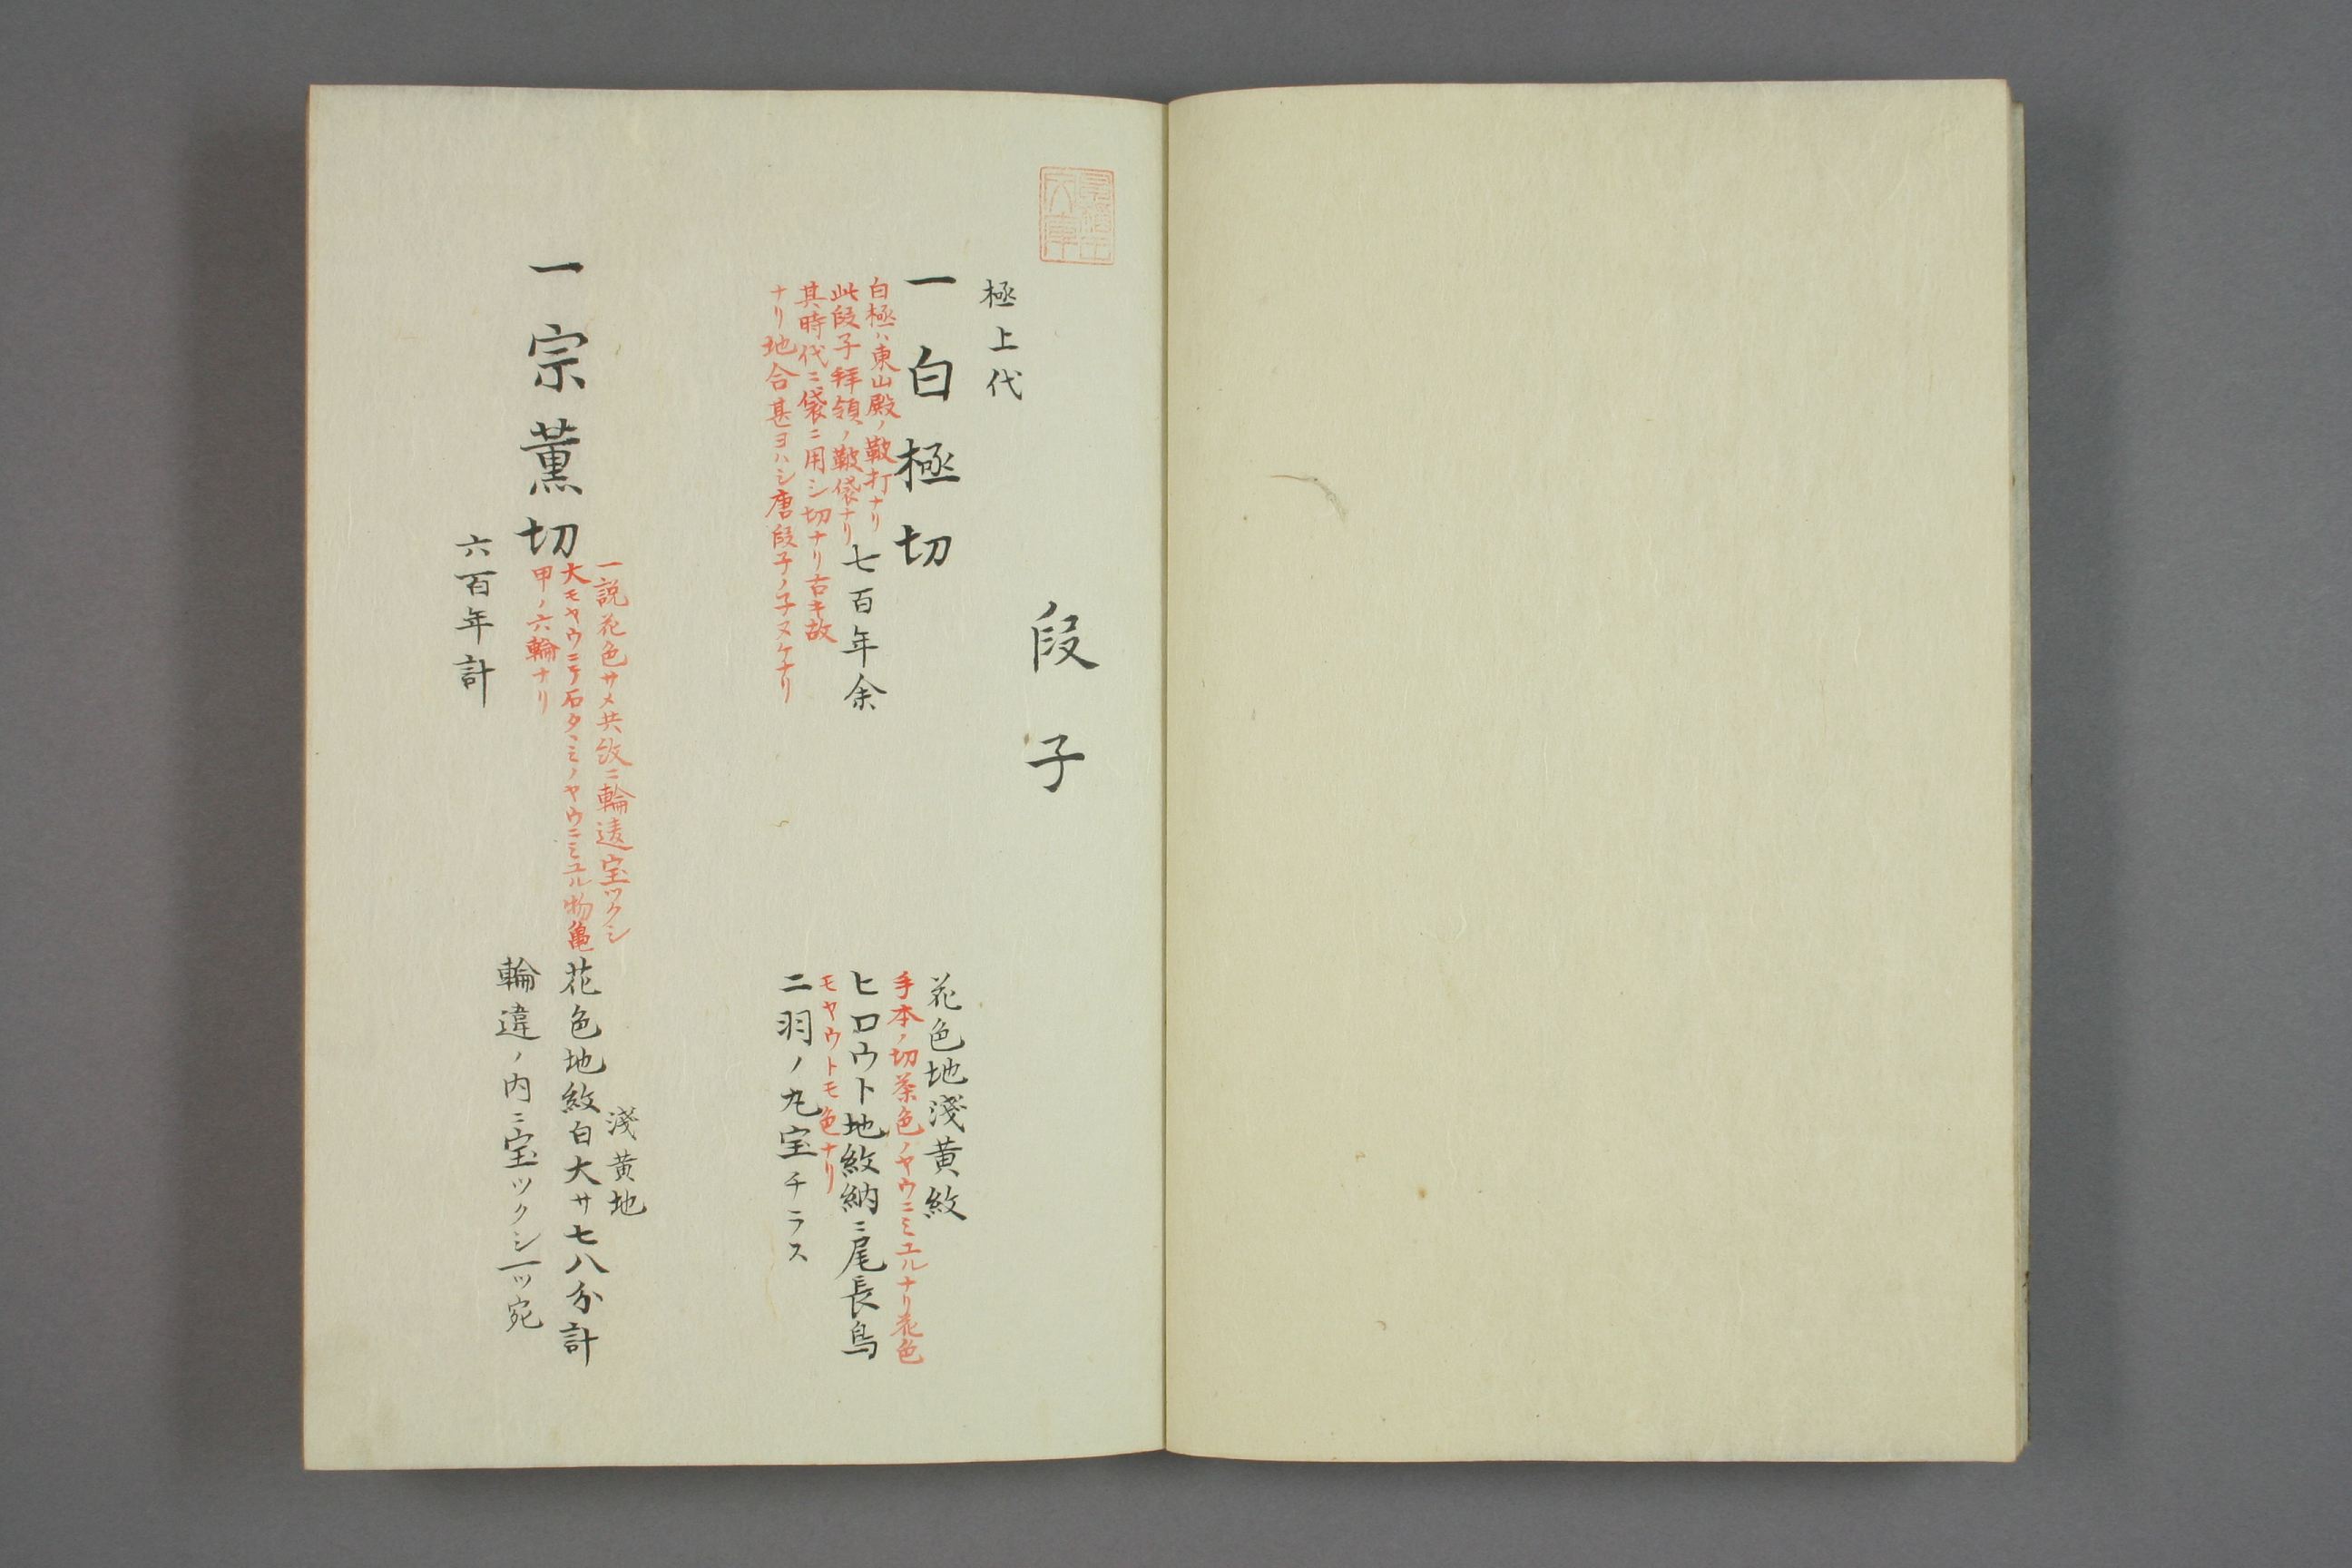 段子
極上代
一白極切
白極ハ東山殿ノ皷打ナリ
此段子拝領ノ皷袋ナリ
七百年余
其時代ニ袋ニ用シ切ナリ古キ故
ナリ地合甚ヨハシ唐段子ノ子ヌケナリ
花色地淺黄紋
手本ノ切茶色ノヤウニミユルナリ花色
ヒロウト地紋納ニ尾長鳥
モヤウトモ色ナリ
二羽ノ丸宝チラス
一宗薫切
一説花色サメ共紋ニ輪違宝ツクシ
大モヤウニテ石タヽミノヤウニミユル物亀
甲ノ六輪ナリ
六百年計
淺黄地
花色地紋白大サ七八分計
輪違ノ内ニ宝ツクシ一ツ宛